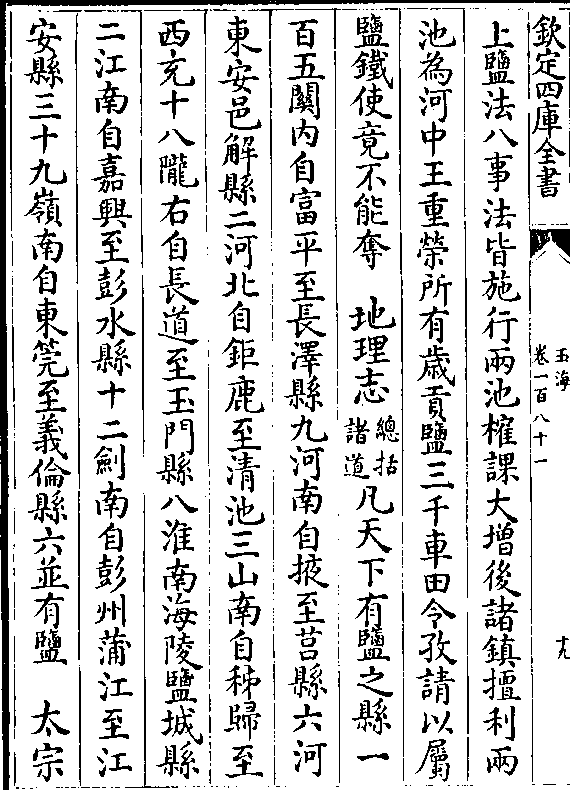 欽定四庫全書
玉海
卷一百八十一
十九
上鹽法八事法皆施行兩池榷課大增後諸鎮擅利兩
池為河中王重榮所有歲貢鹽三千車田令孜請以屬
鹽鐵使竟不能奪　地理志總括諸道凡天下有鹽之縣一
百五關内自富平至長澤縣九河南自掖至莒縣六河
東安邑解縣二河北自鉅鹿至清池三山南自秭歸至
西充十八隴右自長道至玉門縣八淮南海陵鹽城縣
二江南自嘉興至彭水縣十二劍南自彭州蒲江至江
安縣三十九嶺南自東莞至義倫縣六並有鹽　太宗